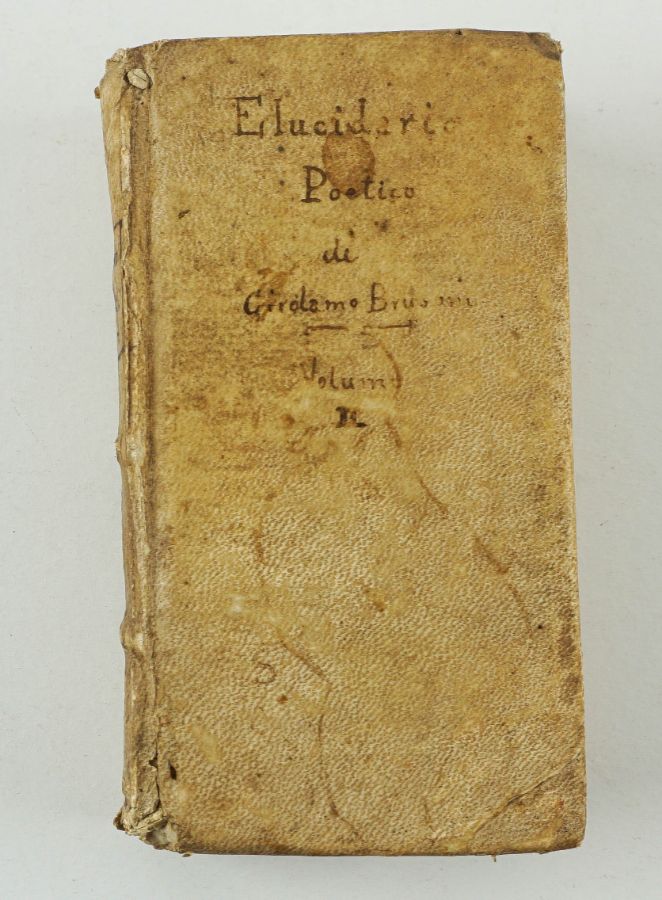 Elucidario
Poetico
di
Girolamo Brusoni
Volume